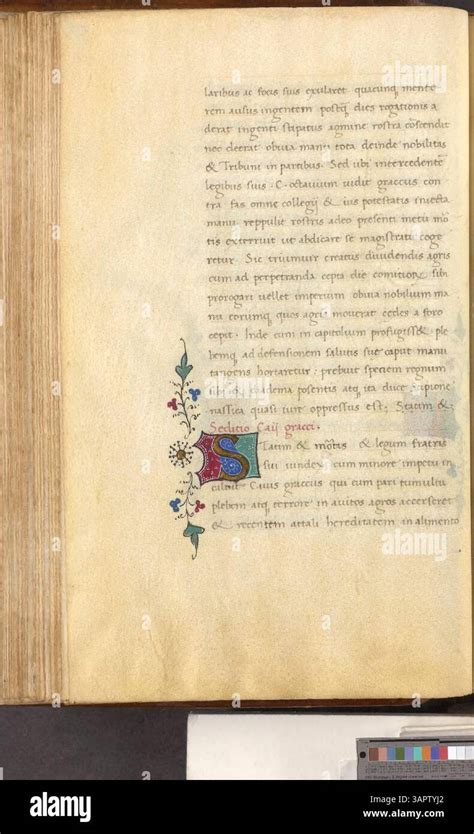 laribus ac focis suis exularet quacunq mente
rem ausus ingentem postq dies rogationis a
derat ingenti stipatus agmine rostra coscendit
nec deerat obuia manu tota deinde nobilitas
& Tribuni in partibus. Sed ubi intercedente
legibus suis. C. octauium uidit graccus con
tra fas omne collegij & ius potestatis iniecta
manu reppulit rostris adeo presenti metu mo
tis exterruit ut abdicare se magistratu coge
retur. Sic triumuir creatus diuidendis agris
cum ad perpetranda cepta die comitior sibi
prorogari uellet imperium obuia nobilium ma
nu eorumq quos agris mouerat cedes a foro
cepit. Inde cum in capitolium profugiss& ple
bemq ad defensionem salutis sue caput manu
tangens hortaretur: prebuit speciem regnum
sibi & diadema posentis atq ita duce scipione
nassica quasi iure oppressus est. Statim &
Seditio Caij gracci.
Statim & mortis & legum fratris
sui uindex cum minore impetu in
caluit Caius graccus qui cum pari tumultu
plebem atq terrore in auitos agros accerseret
& recentem attali hereditatem in alimento
alamy
alamy
Image ID: 3APTYJ2
www.alamy.com